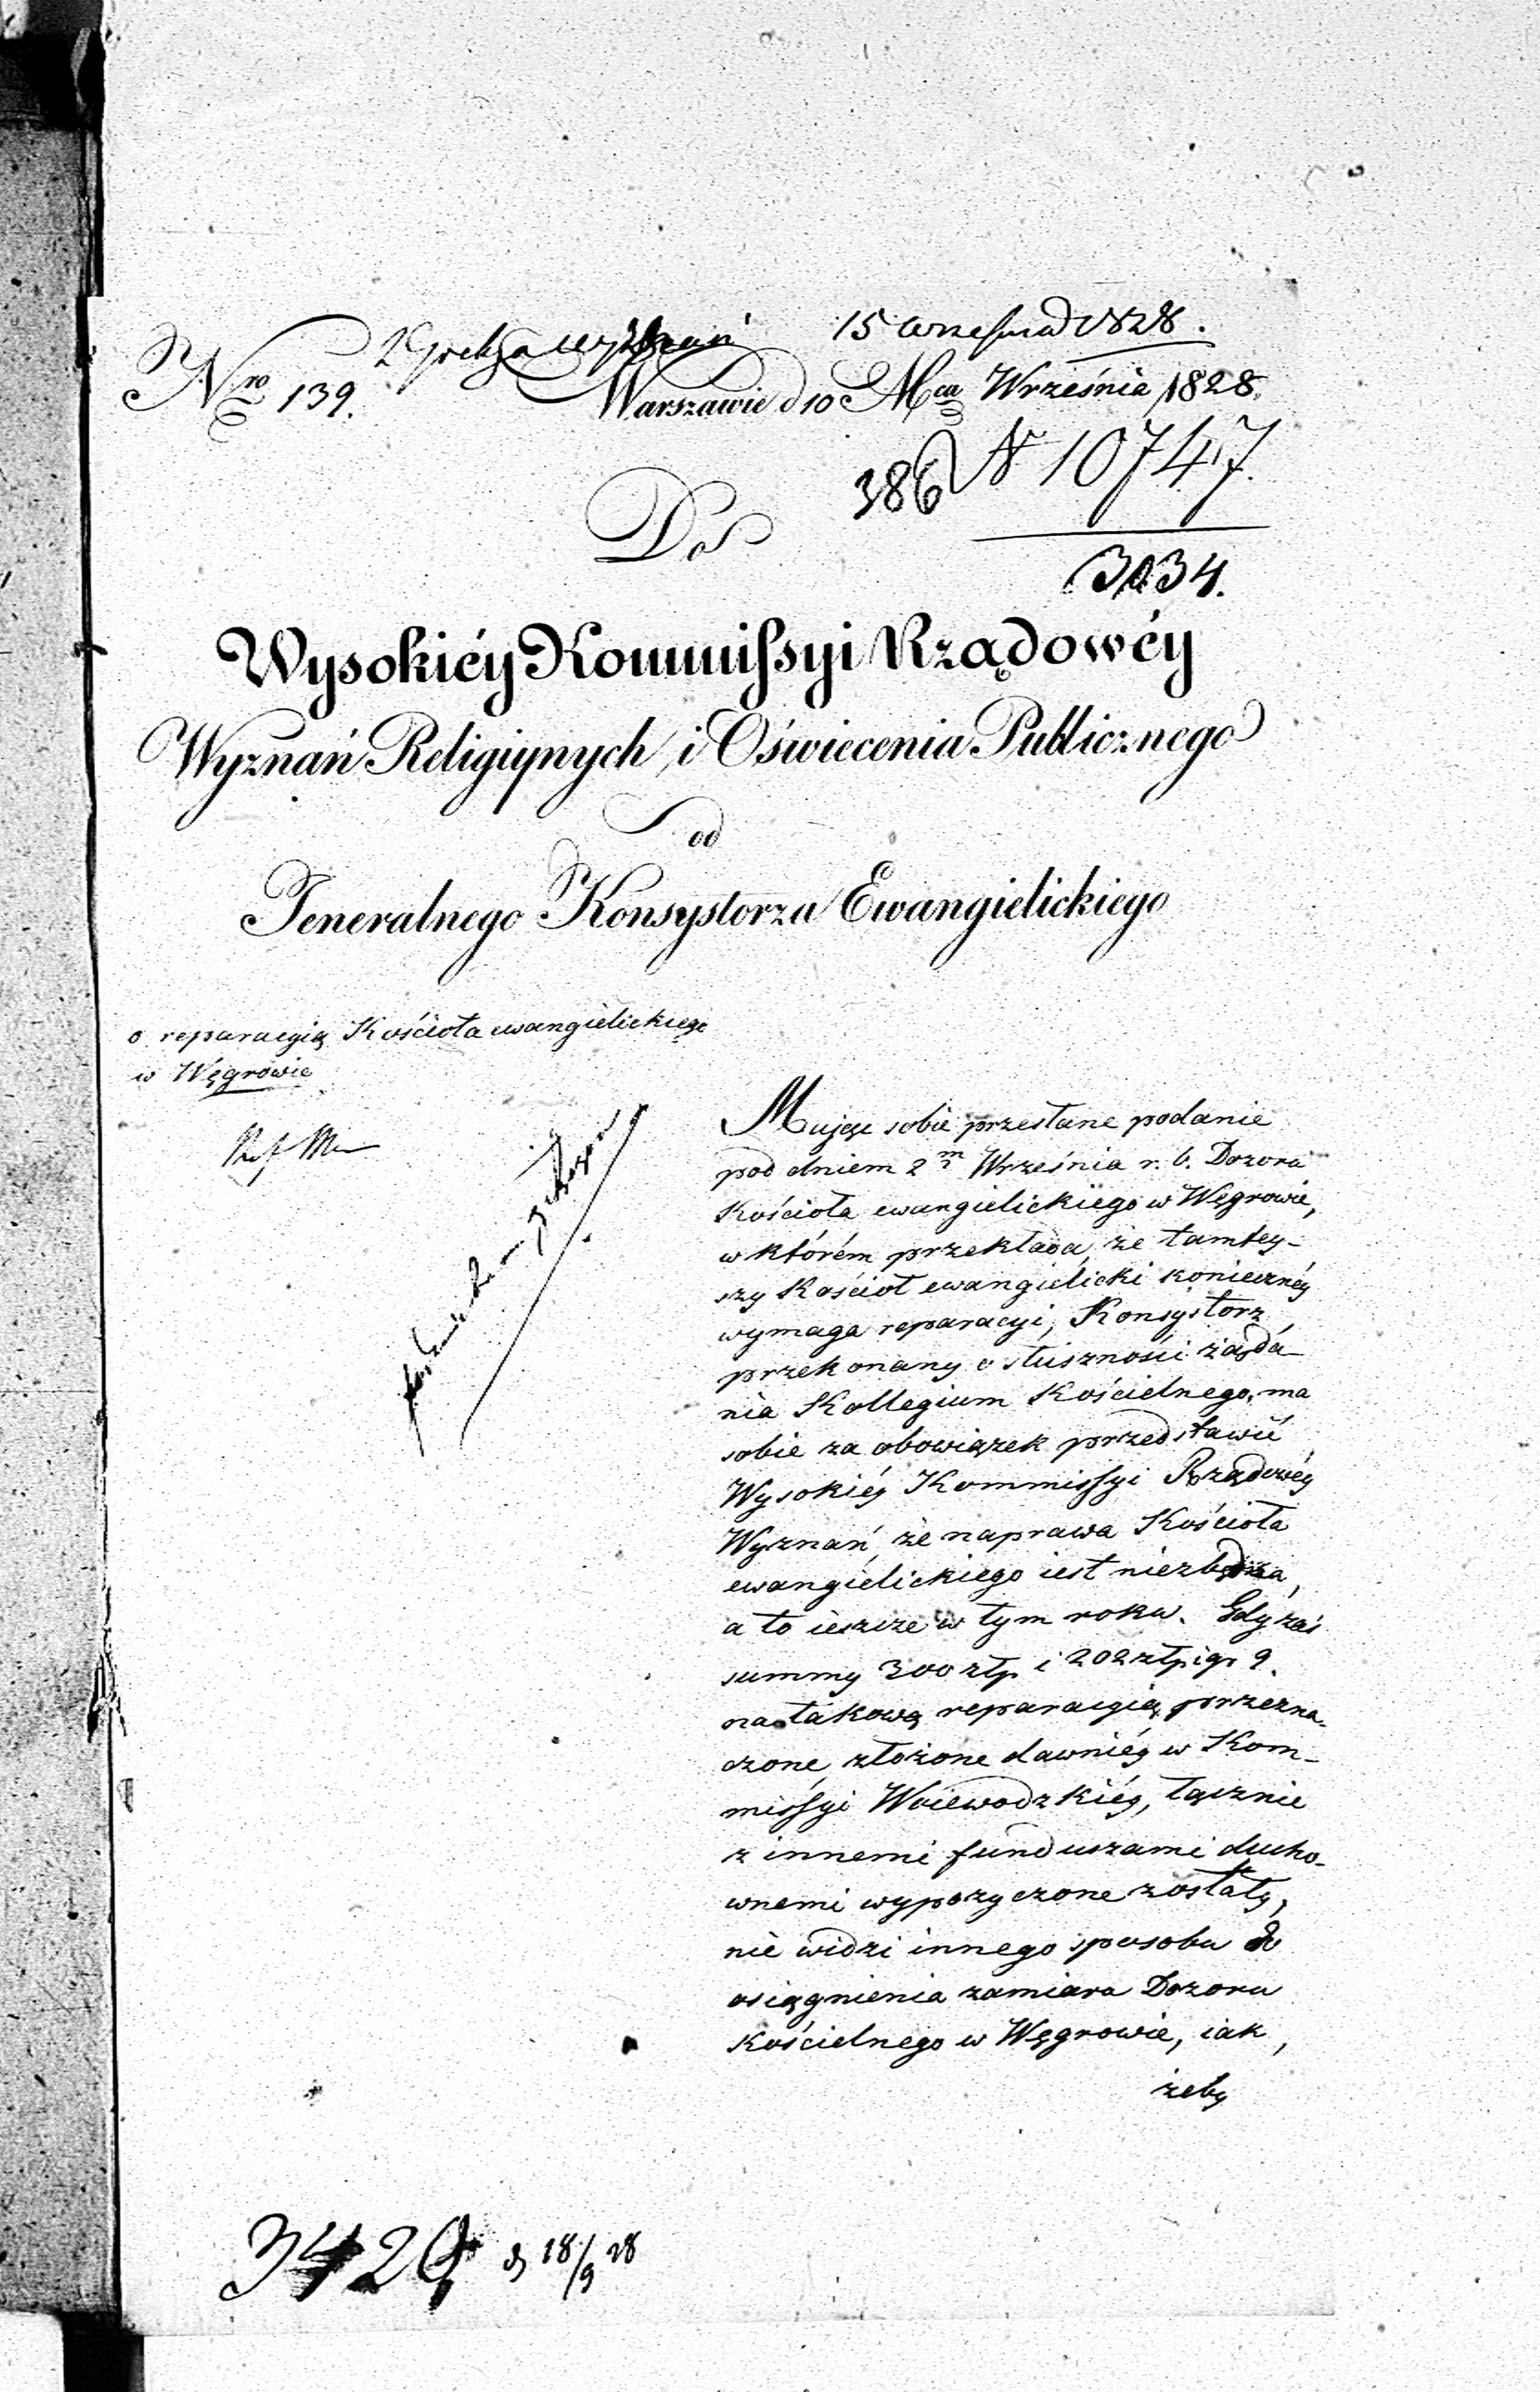 15 Września 1828.
Nro 139.
Warszawie d 10 Mca Września 1828.
386
N 10747.
3034.
Do
Wysokiéy Kommissyi Rządowéy
Wyznań Religiynych i Oświecenia Publicznego
od
Jeneralnego Konsystorza Ewangielickiego
o reparacyią Kościoła ewangielickiego
w Węgrowie
Majęc sobie przesłane podanie
pod dniem 2m Września r. b. Dozoru
Kościoła ewangielickiego w Węgrowie,
w którém przekłada, że tamtey-
szy Kościoł ewangielicki koniecznéy
wymaga reparacyi, Konsystorz
przekonany o słuszności żąda-
nia Kollegium Kościelnego, ma
sobie za obowiązek przedstawić
Wysokiéy Kommissyi Rządowéy
Wyznań, że naprawa Kościoła
ewangielickiego iest niezbędna,
a to ieszcze w tym roku. Gdy zaś
summy 300 złp i 202 złp i gr 9.
na takową reparacyią przezna-
czone złożone dawniéy w Kom-
missyi Woiewodzkiéy, łącznie
z innemi funduszami ducho-
wnemi wypożyczone zostały,
nie widzi innego sposobu do
osiągnienia zamiaru Dozoru
Kościelnego w Węgrowie, iak,
żeby
d 18/9 28